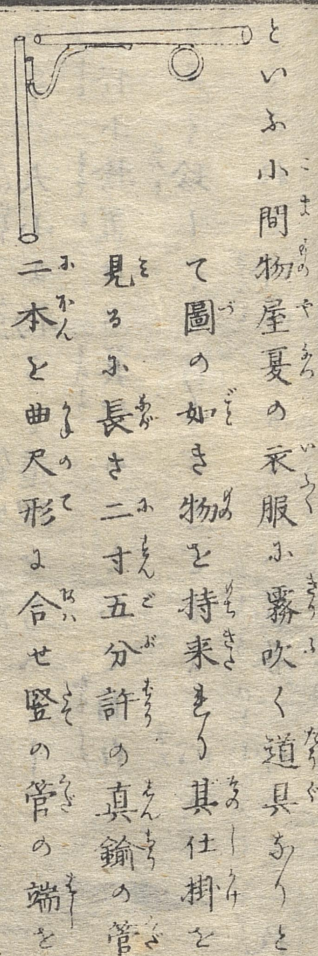 といふ小間物屋夏の衣服に霧吹く道具なりと
て圖の如き物を持来れり其仕掛を
見るに長さ二寸五分許の真鍮の管
二本を曲尺形に合せ竪の管の端を